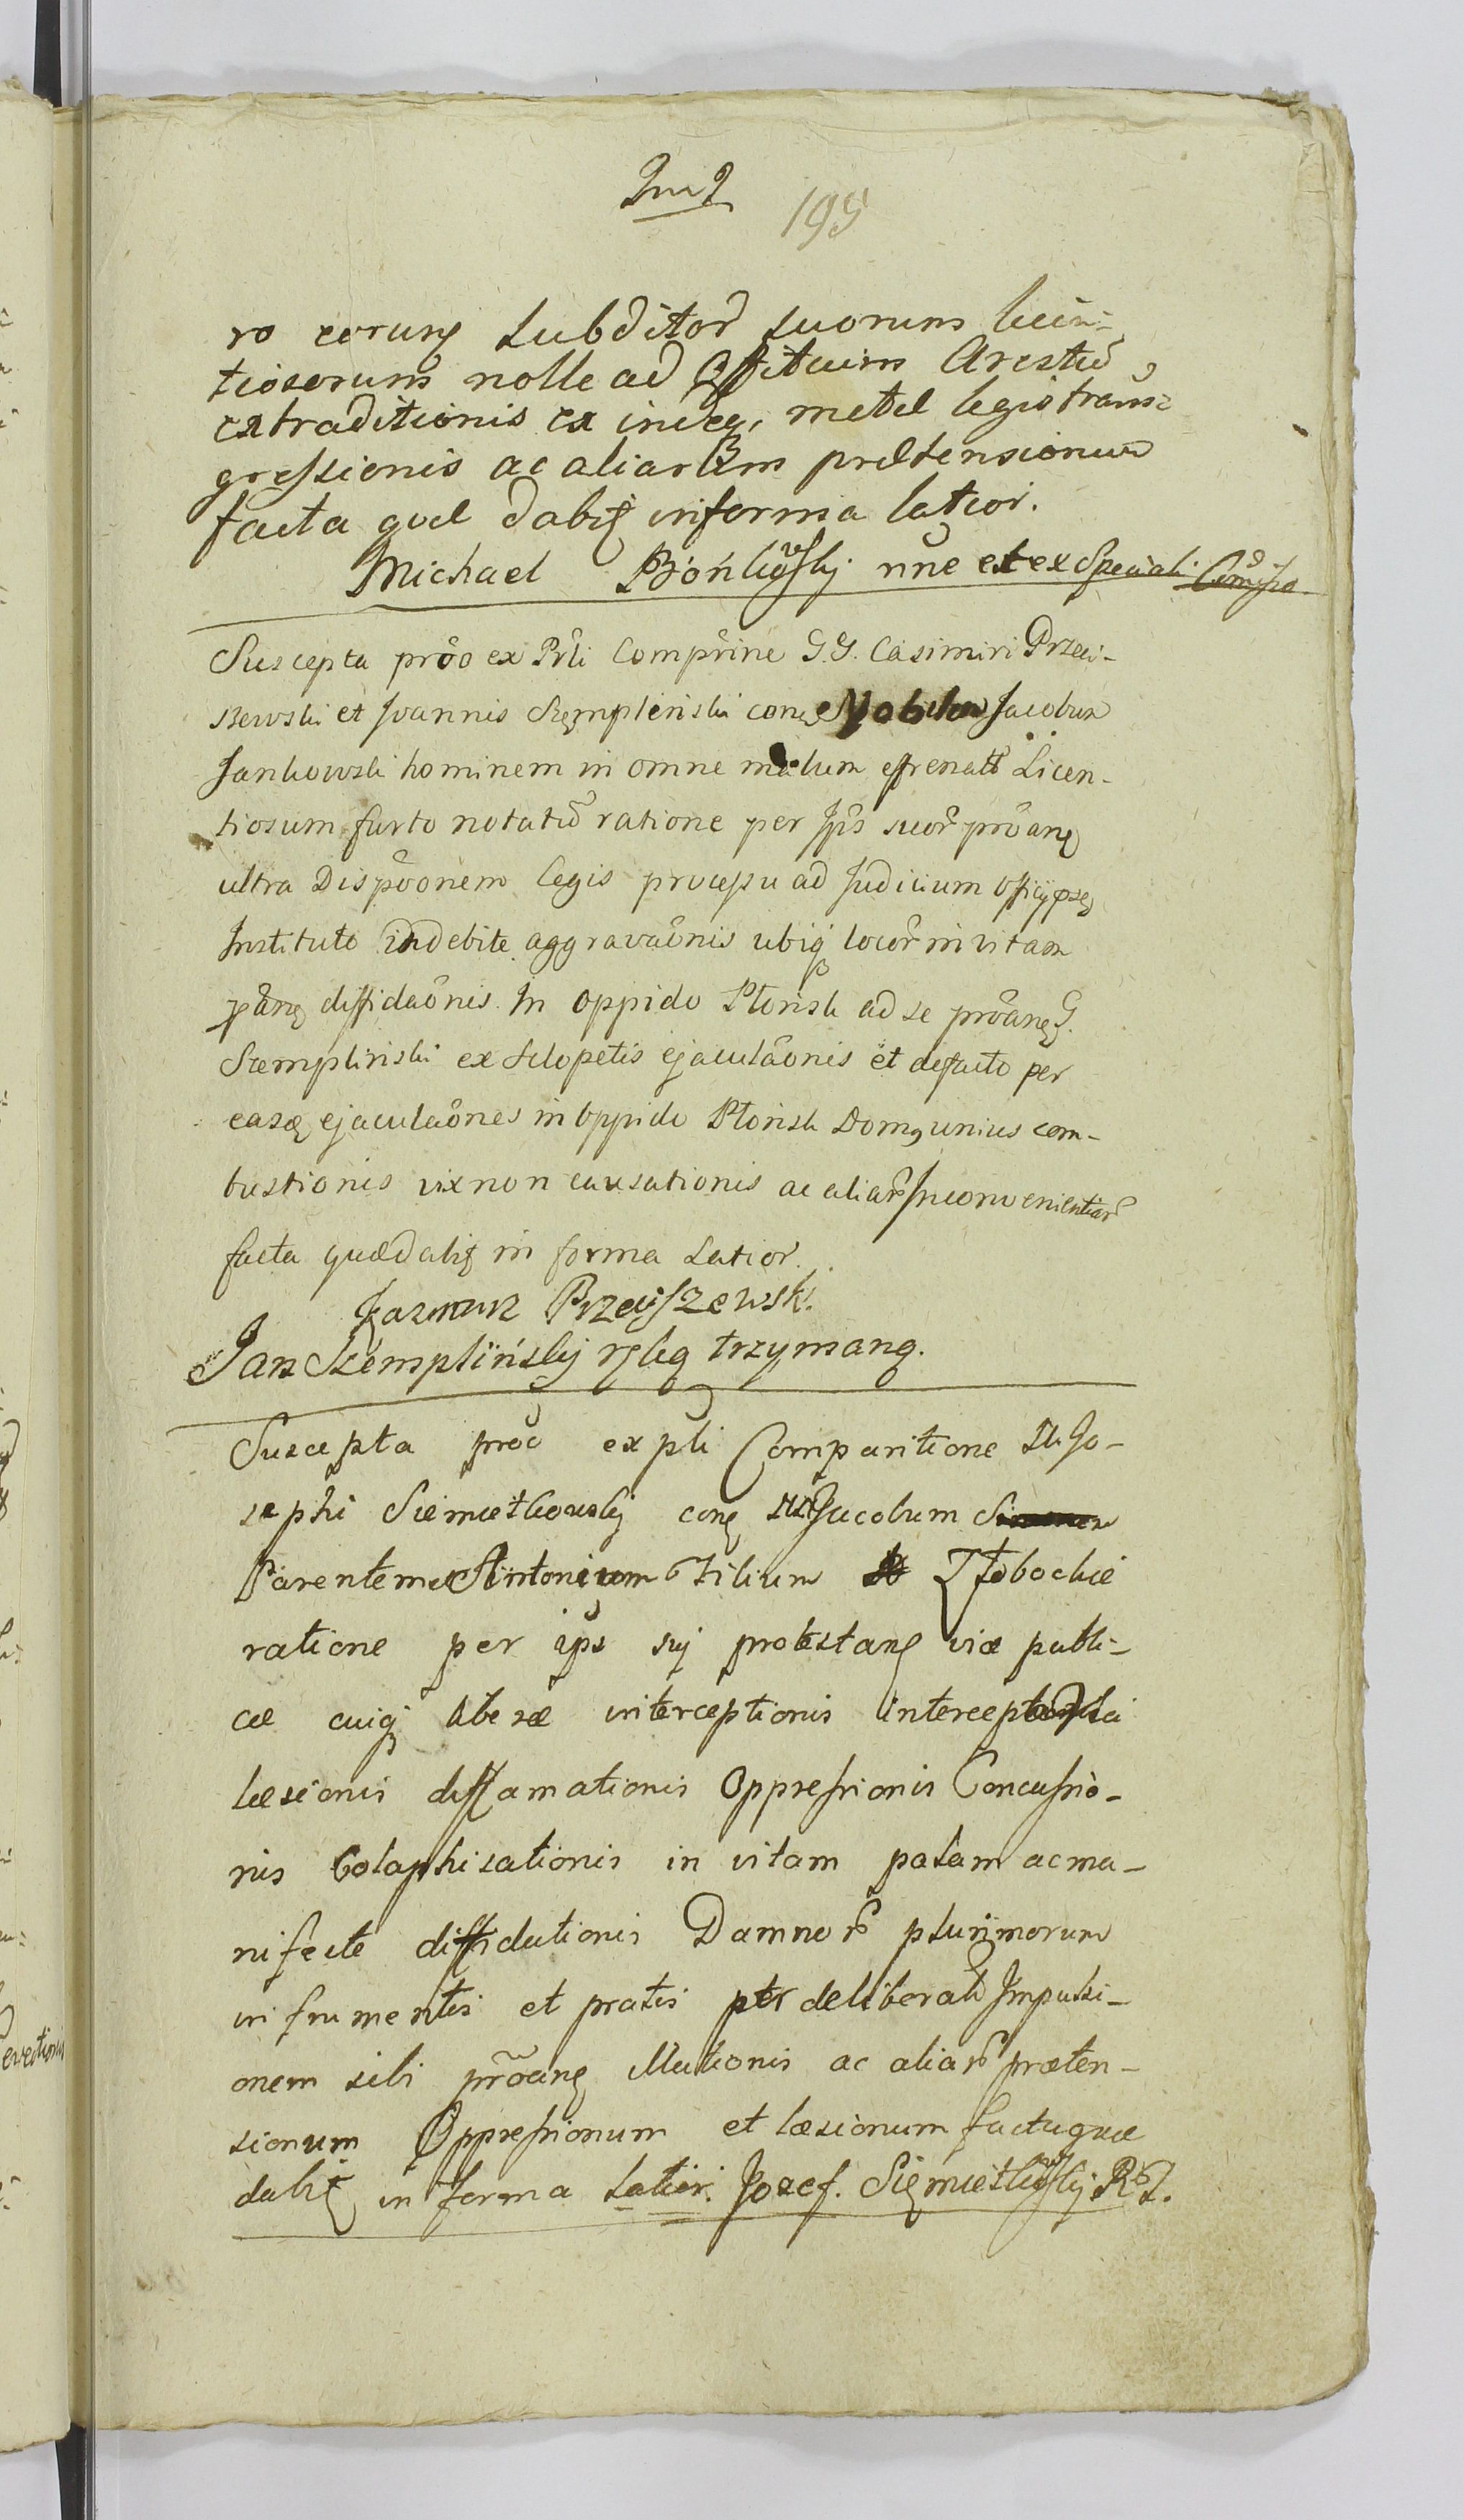 195
ro eorung Subditor suorum licin-
tiosorum nolle ad Offitium Arestu,
extraditionis ex indeq, metel legis trans-
gressionis ac aliarum prætensionum
facta quæ dabit in forma latior.
Michael Bońkowskÿ nne et ex Speciali Comisso
Suscepta proo ex Prli Comprine G.G. Casimiri Przeci-
szewski et Joannis Szempleński cong Nobilem Jacobum
Jankowski hominem in omne malum effrenatu Licen-
tiosum furto notatu ratione per Ips suor proang
ultra Dispoonem legis processu ad Judicium Officÿ
Instituto indebite aggravaonis ubiq locor in vitam
prang diffidaonis in oppido Płońsk ad se proang G.
Szempliński ex Sclopetis ejaculaonis et defacto per
easq ejaculaones in oppido Płońsk Domq unius com-
bustionis vix non causationis ac aliar Inconvenientiar
facta quæ dabit in forma Latior.
Kazimirz Przeciszewski.
Jan Szempliński ręką trzymaną.
Suscepta proo ex pli Comparitione Jo-
sephi Siemiątkowskÿ cong Jacobum
Parentem et Antonium Filium Kłobockie
ratione per ips suj protestang viæ publi-
cæ cuiq liberæ interceptionis
læsionis diffamationis Oppressionis Concussio-
nis Colaphisationis in vitam palam ac ma-
nifeste diffidationis Damnor plurimorum
in frumentis et pratis per deliberatu Impulsi-
onem sibi proang illationis ac aliar præten-
sionum Oppressionum et læsionum facta quæ
dabit in forma Latior. Jozef. Siemiątkowskÿ